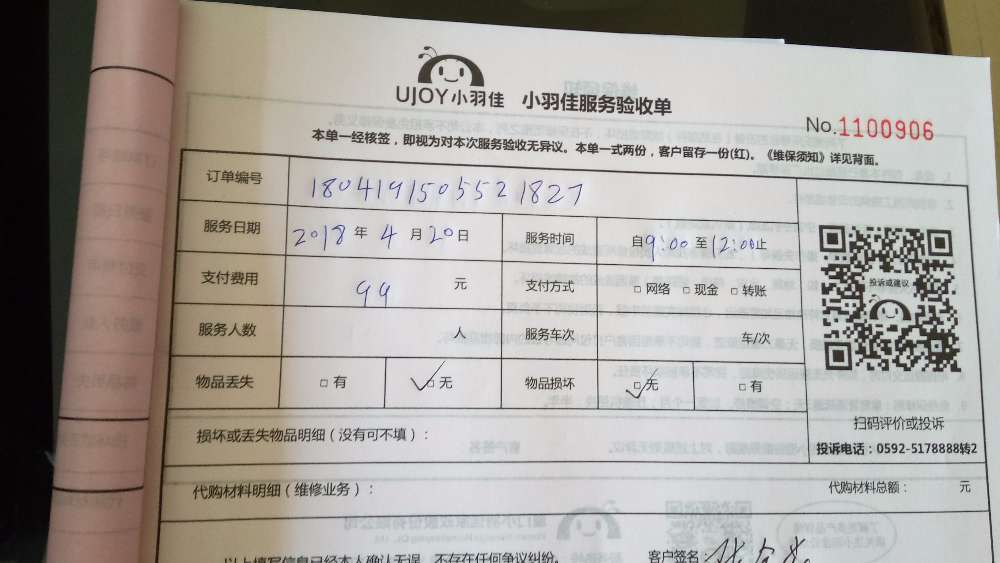 UJOY小羽佳 小羽佳服务验收单
No.1100906
本单一经核签，即视为对本次服务验收无异议。本单一式两份，客户留存一份(红)。《维保须知》详见背面。
订单编号 1804191505521827
服务日期 2018年4月20日 服务时间 自9:00至12:00止
支付费用 99元 支付方式 □网络 □现金 □转账
投诉或建议
服务人数 人 服务车次 车/次
物品丢失 □有 ✓□无 物品损坏 ✓□无 □有
扫码评价或投诉
损坏或丢失物品明细（没有可不填）：
投诉电话：0592-5178888转2
代购材料明细（维修业务）： 代购材料总额： 元
以上填写信息已经本人确认无误，不存在任何争议纠纷。 客户签名：